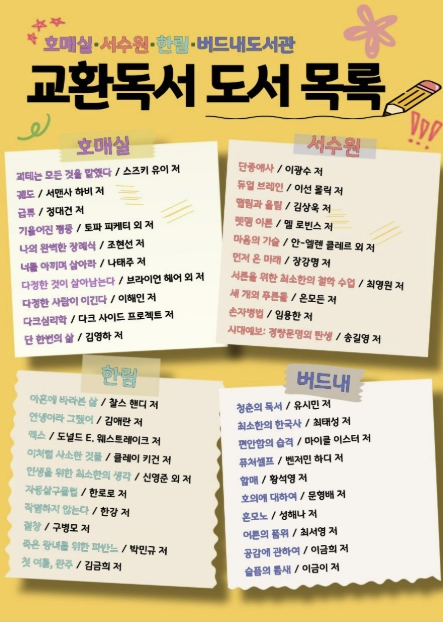 호매실·서수원·한림·버드내도서관
교환독서 도서 목록
호매실
괴테는 모든 것을 말했다 / 스즈키 유이 저
궤도 / 서맨사 하비 저
급류 / 정대건 저
기울어진 평등 / 토마 피케티 외 저
나의 완벽한 장례식 / 조현선 저
너를 아끼며 살아라 / 나태주 저
다정한 것이 살아남는다 / 브라이언 헤어 외 저
다정한 사람이 이긴다 / 이해인 저
다크심리학 / 다크 사이드 프로젝트 저
단 한번의 삶 / 김영하 저
서수원
단종애사 / 이광수 저
듀얼 브레인 / 이선 몰릭 저
떨림과 울림 / 김상욱 저
렛뎀 이론 / 멜 로빈스 저
마음의 기술 / 안-엘렌 클레르 외 저
먼저 온 미래 / 장강명 저
서른을 위한 최소한의 철학 수업 / 최영원 저
세 개의 푸른돌 / 은모든 저
손자병법 / 임용한 저
시대예보: 경량문명의 탄생 / 송길영 저
한림
아흔에 바라본 삶 / 찰스 핸디 저
안녕이라 그랬어 / 김애란 저
액스 / 도널드 E. 웨스트레이크 저
이처럼 사소한 것들 / 클레이 키건 저
인생을 위한 최소한의 생각 / 신영준 외 저
자몽살구클럽 / 한로로 저
작별하지 않는다 / 한강 저
절창 / 구병모 저
죽은 왕녀를 위한 파반느 / 박민규 저
첫 여름, 완주 / 김금희 저
버드내
청춘의 독서 / 유시민 저
최소한의 한국사 / 최태성 저
편안함의 습격 / 마이클 이스터 저
퓨처셀프 / 벤저민 하디 저
할매 / 황석영 저
호의에 대하여 / 문형배 저
혼모노 / 성해나 저
어른의 품위 / 최서영 저
공감에 관하여 / 이금희 저
슬픔의 틈새 / 이금이 저